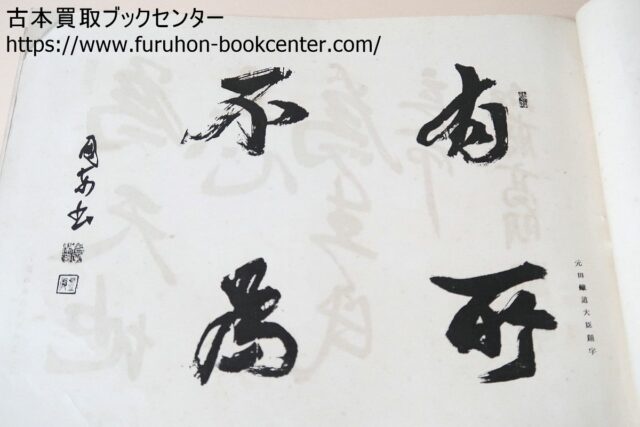 古本買取ブックセンター
https://www.furuhon-bookcenter.com/
元田鐵道大臣題字
有所
不為
国東書